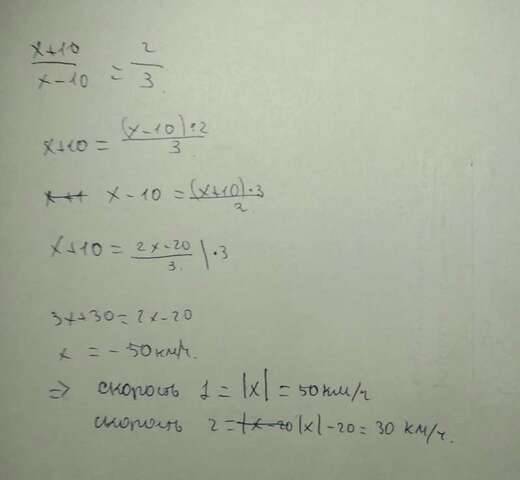 x+10 / x-10 = 2/3
x+10 = (x-10)·2 / 3
x-10 = (x+10)·3 / 2
x+10 = 2x-20 / 3 |·3
3x+30=2x-20
x = -50км/ч.
=> скорость 1 = |x| = 50км/ч
скорость 2 = |x|-20 = 30 км/ч.